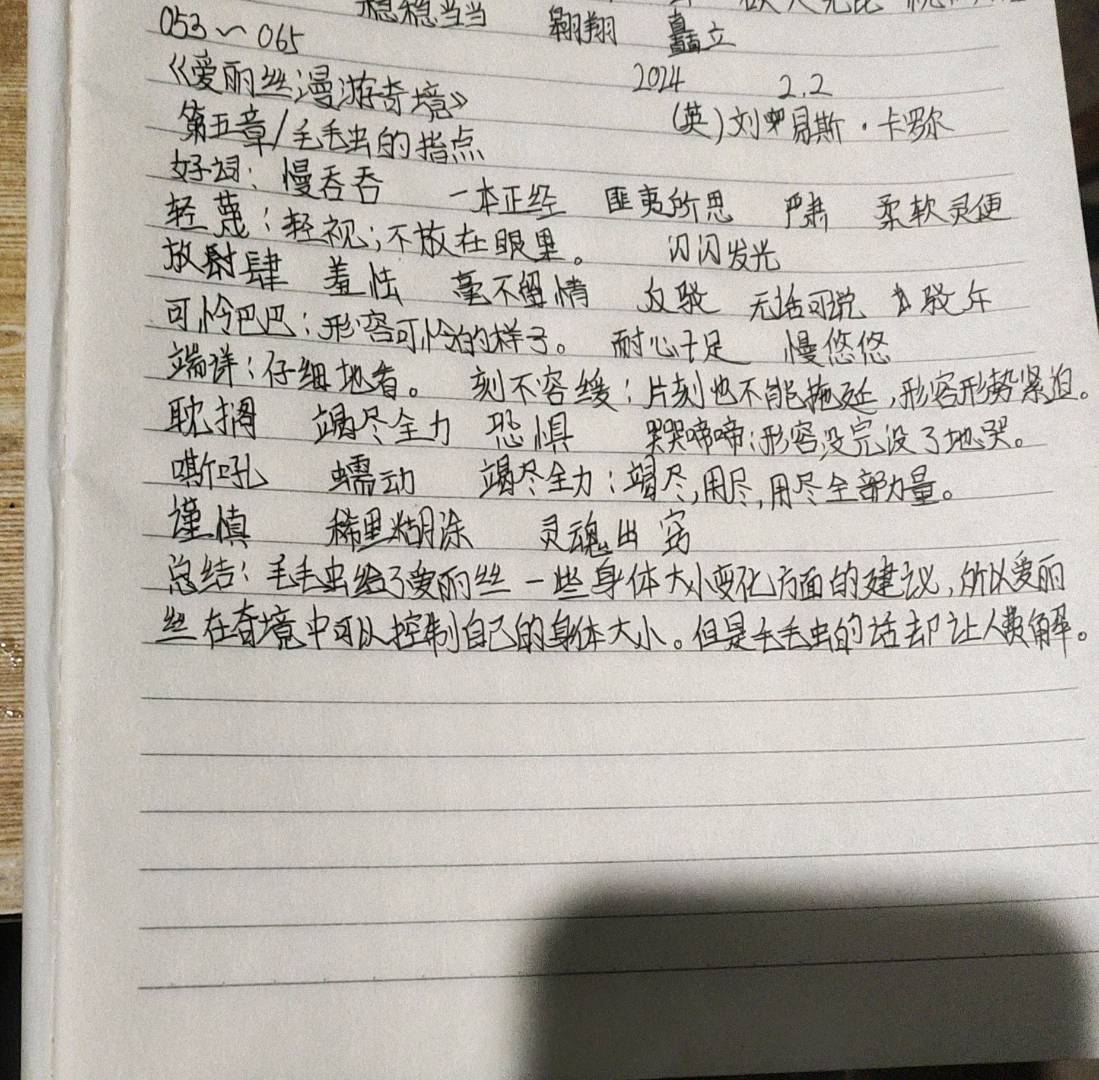 稳稳当当 翱翔 矗立
053～065
《爱丽丝漫游奇境》 2024 2.2
第五章/毛毛虫的指点 (英)刘易斯·卡罗尔
好词：慢吞吞 一本正经 匪夷所思 严肃 柔软灵便
轻蔑：轻视；不放在眼里。 闪闪发光
放肆 羞怯 毫不留情 反驳 无话可说
可怜巴巴：形容可怜的样子。 耐心十足 慢悠悠
端详：仔细地看。 刻不容缓：片刻也不能拖延，形容形势紧迫。
耽搁 竭尽全力 恐惧 哭哭啼啼：形容没完没了地哭。
嘶吼 蠕动 竭尽全力：竭尽，用尽，用尽全部力量。
谨慎 稀里糊涂 灵魂出窍
总结：毛毛虫给了爱丽丝一些身体大小变化方面的建议，所以爱丽
丝在奇境中可以控制自己的身体大小。但是毛毛虫的话却让人费解。